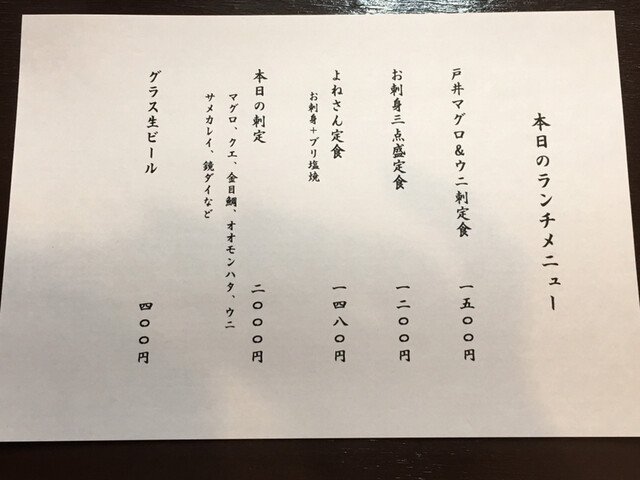 本日のランチメニュー
戸井マグロ&ウニ刺定食 一五〇〇円
お刺身三点盛定食 一二〇〇円
よねさん定食 一四八〇円
お刺身+ブリ塩焼
本日の刺定 二〇〇〇円
マグロ、クエ、金目鯛、オオモンハタ、ウニ
サメカレイ、鏡ダイなど
グラス生ビール 四〇〇円